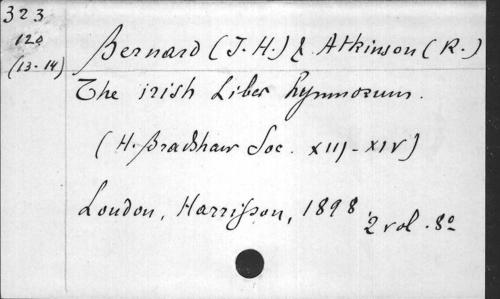 323
120
(13-14)
Bernard (J. H.) & Atkinson (R.)
The irish Liber hymnorum.
(H. Bradshaw Soc. XIII-XIV)
London, Harrisson, 1898, 2 vol. 8º